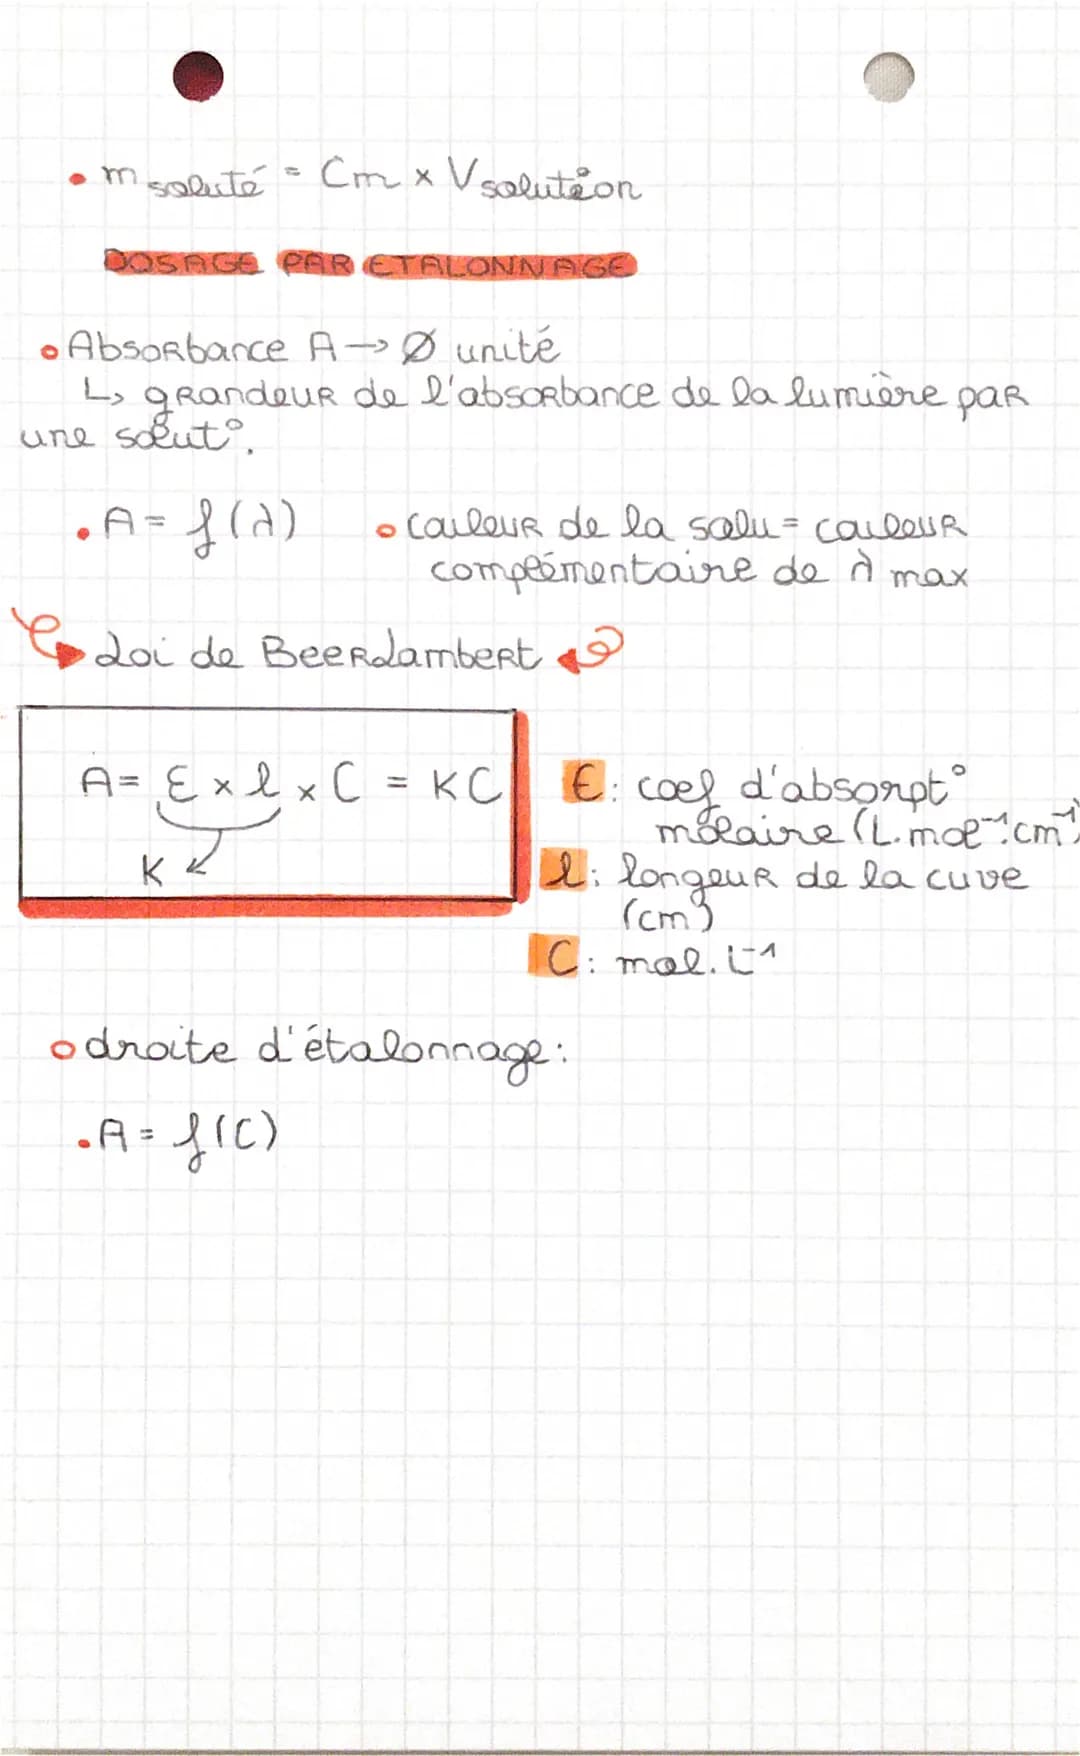 • m soluté = Cm x V solution
DOSAGE PAR ETALONNAGE
• Absorbance A → Ø unité
↳ grandeur de l'absorbance de la lumière par
une solut°.
• A = f(λ)
• couleur de la solu = couleur
complémentaire de λ max
Loi de Beer Lambert
A = Ɛ x l x C = KC
K
Ɛ: coef d'absorpt°
molaire (L.mol⁻¹.cm⁻¹)
l: longeur de la cuve
(cm)
C: mol.L⁻¹
• droite d'étalonnage:
• A = f(C)